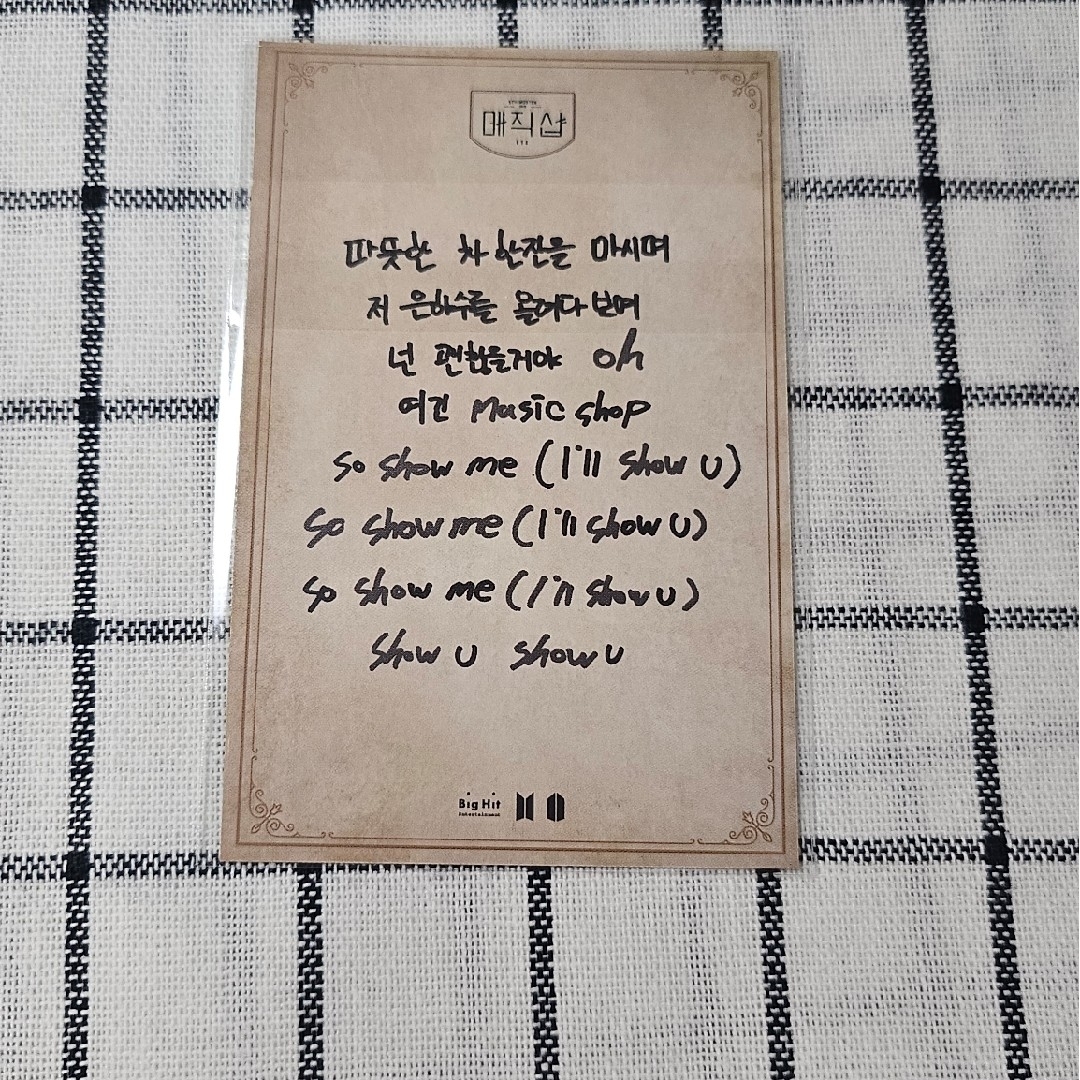 매직샵
따뜻한 차 한잔을 마시며
저 은하수를 올려다보며
넌 괜찮을거야 oh
여긴 Music shop
So show me (I'll show U)
So show me (I'll show U)
So show me (I'll show U)
Show U show U
Big Hit
Entertainment